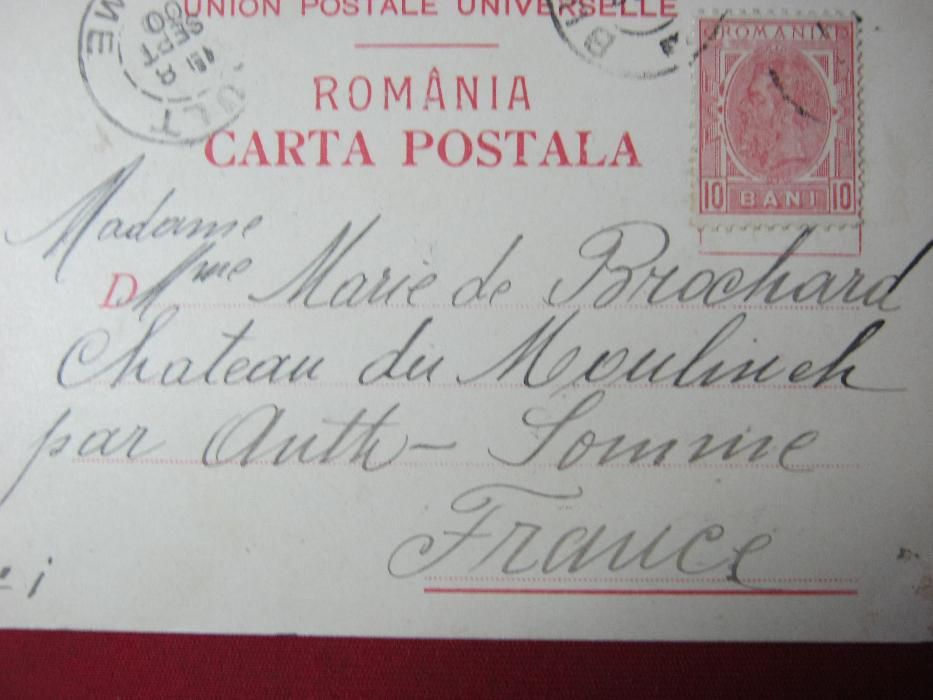 UNION POSTALE UNIVERSELLE
ROMÂNIA
CARTA POSTALA
ROMANIA
10 BANI 10
Madame
D Mme Marie de Brochard
Chateau du Moulinek
par Ault - Somme
France